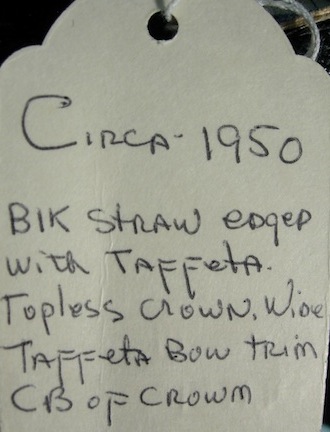 Circa - 1950
Blk straw edged
with Taffeta.
Topless crown. Wide
Taffeta Bow trim
CB of crown